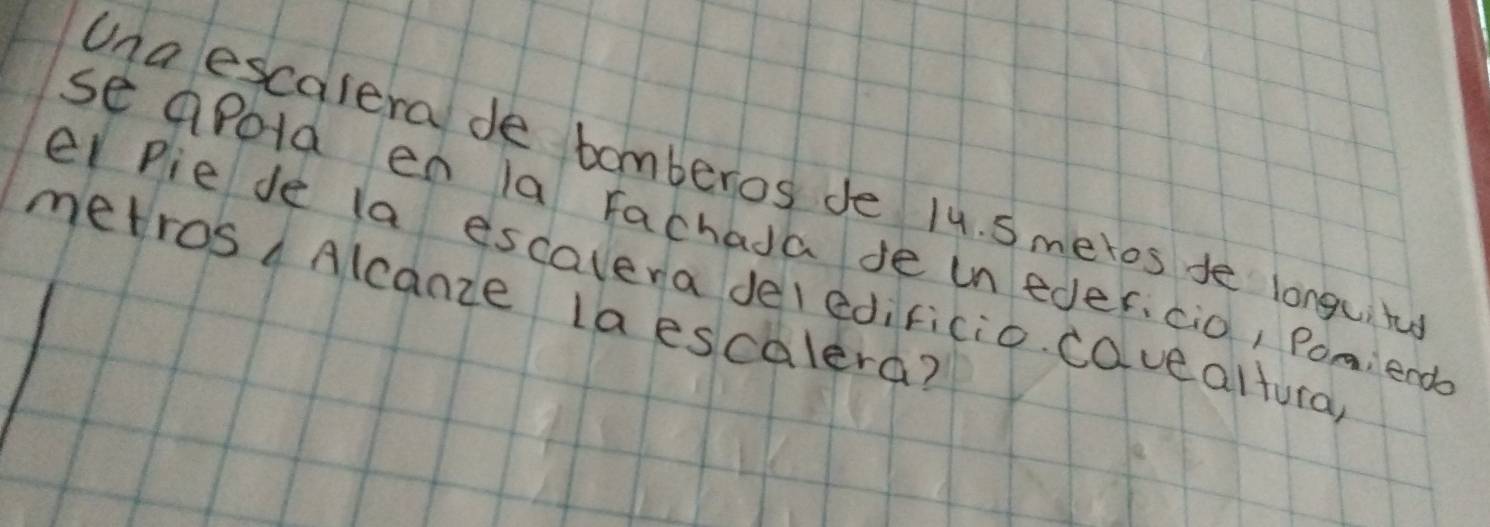 Una escalera de bomberos de 14.5 metos de longuitud
se apoia en la Fachada de un edeficio, Pomiendo
el Pie de la escalera del edificio. Cavealtura,
metros, Alcanze la escalera?